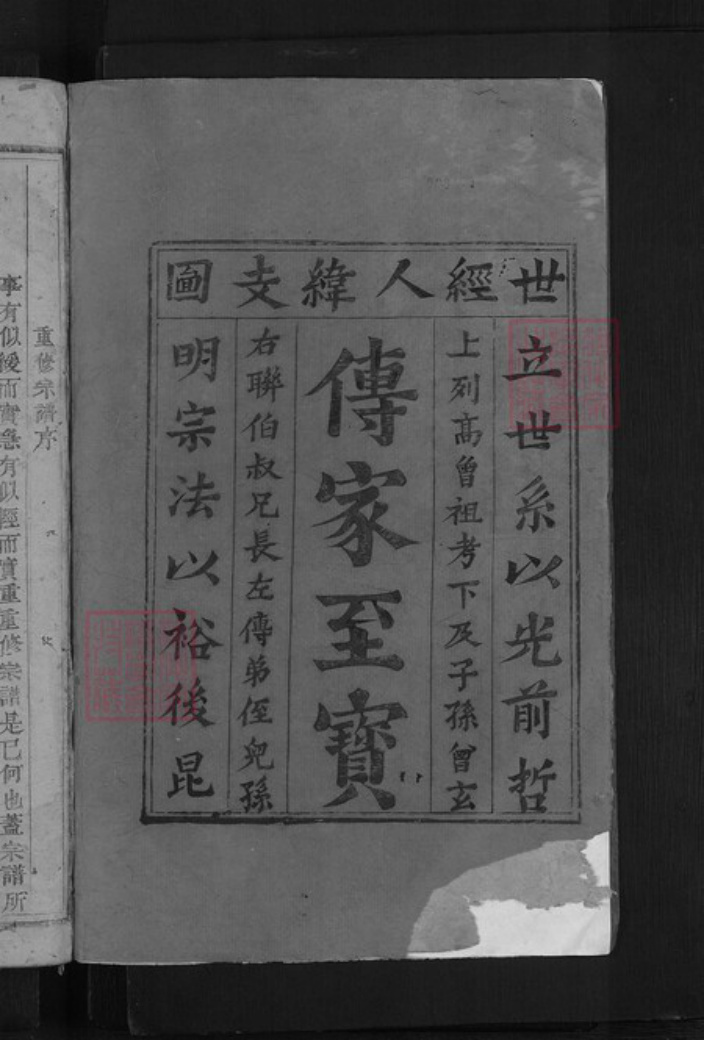 世經人緯支圖
立世系以光前哲
上列高曾祖考下及子孫曾玄
傳家至寶
右聯伯叔兄長左傳弟侄兒孫
明宗法以裕後昆
重修宗譜序
事有似緩而實急有似輕而實重重修宗譜是已何也蓋宗譜所